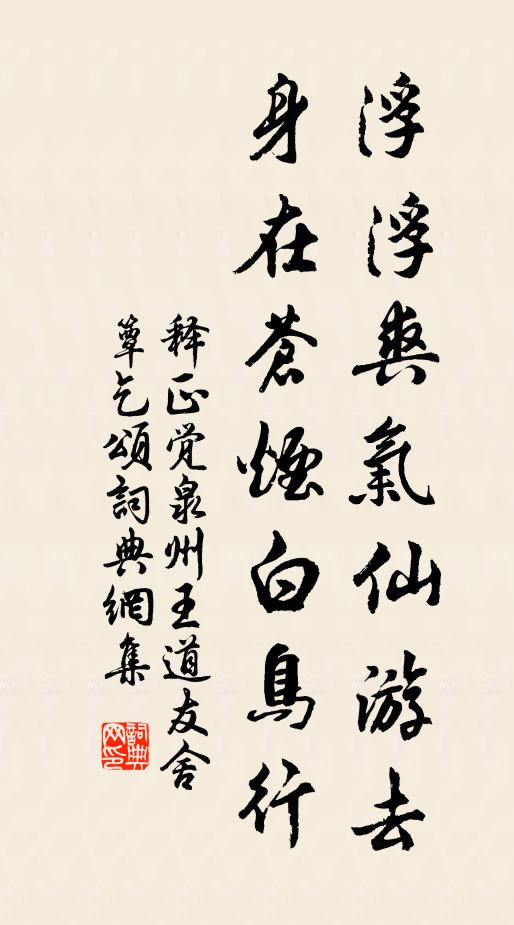 浮浮爽氣仙游去
身在蒼煙白鳥行
释正觉泉州王道友舍
簟乞頌詞典網集
詞典网印